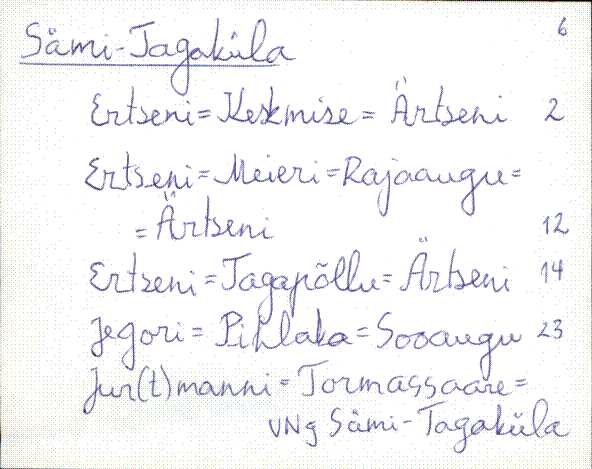 6
Sämi-Tagaküla
Ertseni = Keskmise = Ärtseni 2
Ertseni = Meieri = Rajaaugu =
= Ärtseni 12
Ertseni = Tagapõllu = Ärtseni 14
Jegori = Pihlaka = Sooaugu 23
Jur(t)manni = Tormassaare =
VNg Sämi-Tagaküla